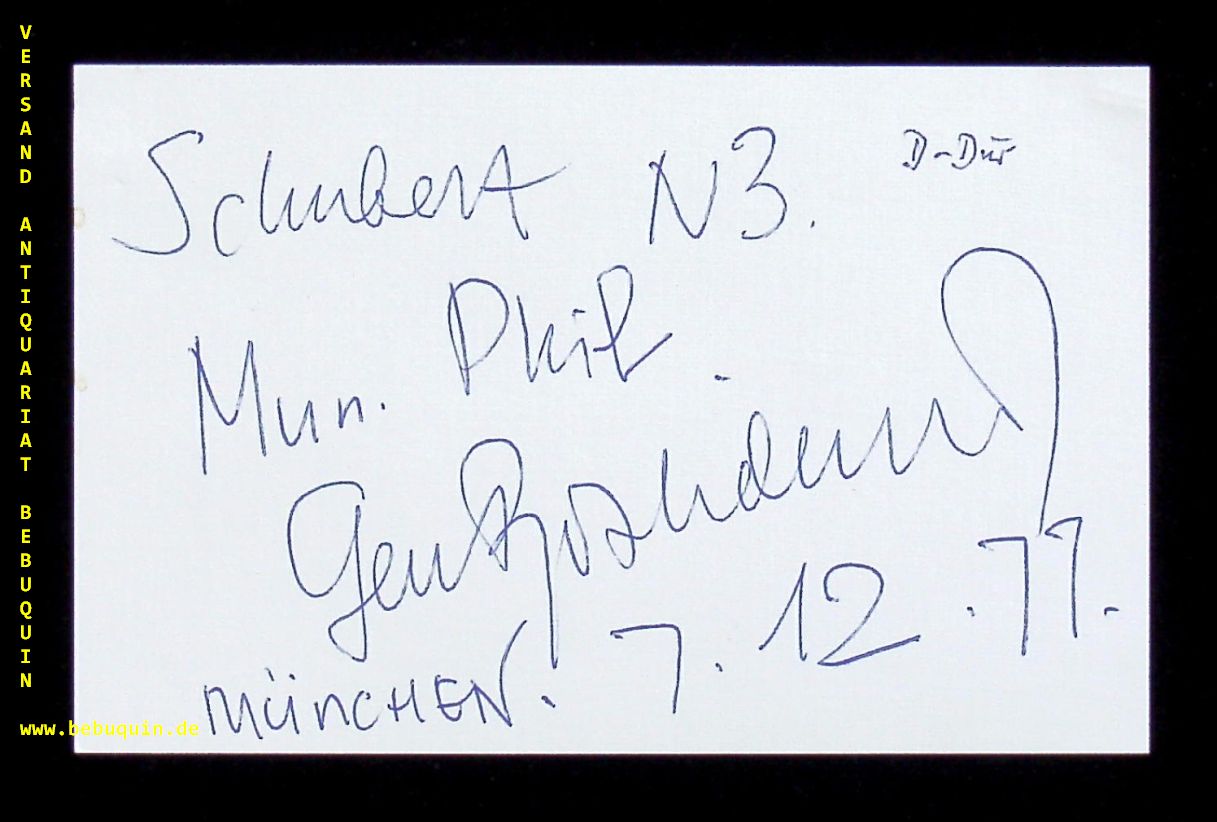 VERSAND ANTIQUARIAT BEBUQUIN
www.bebuquin.de
Schubert N3. D-Dur
Mun. Phil.
Gen Roshdestw
MÜNCHEN. 7. 12. 77.